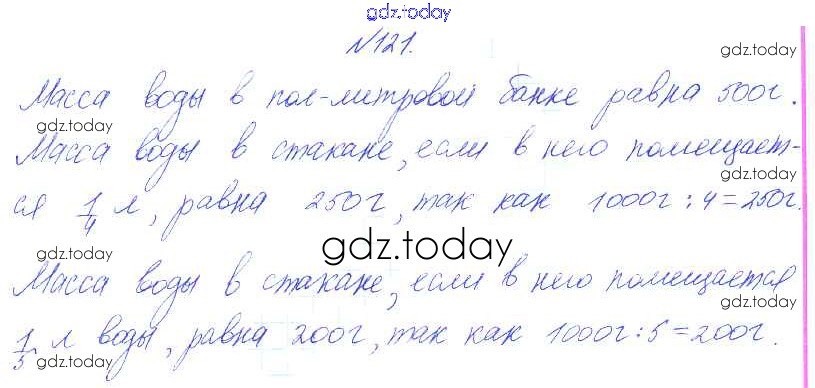 gdz.today
№121.
gdz.today
Масса воды в пол-литровой банке равна 500г.
gdz.today
Масса воды в стакане, если в него помещает-
gdz.today
ся 1/4 л, равна 250г, так как 1000г : 4 = 250г.
gdz.today
gdz.today
Масса воды в стакане, если в него помещается
gdz.today
1/5 л воды, равна 200г, так как 1000г : 5 = 200г.
gdz.today
gdz.today